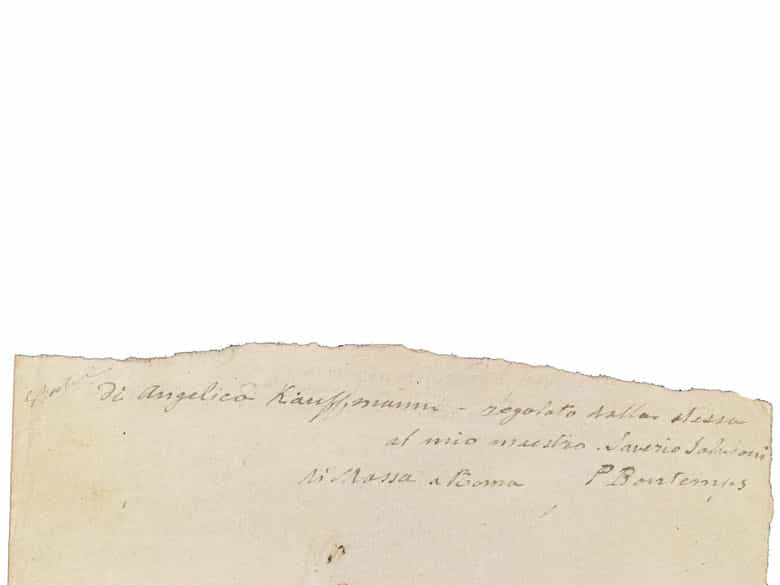 di Angelica Kauffmann – regalato dalla stessa
al mio maestro Saverio Salvioni
di Massa a Roma P Bontemps